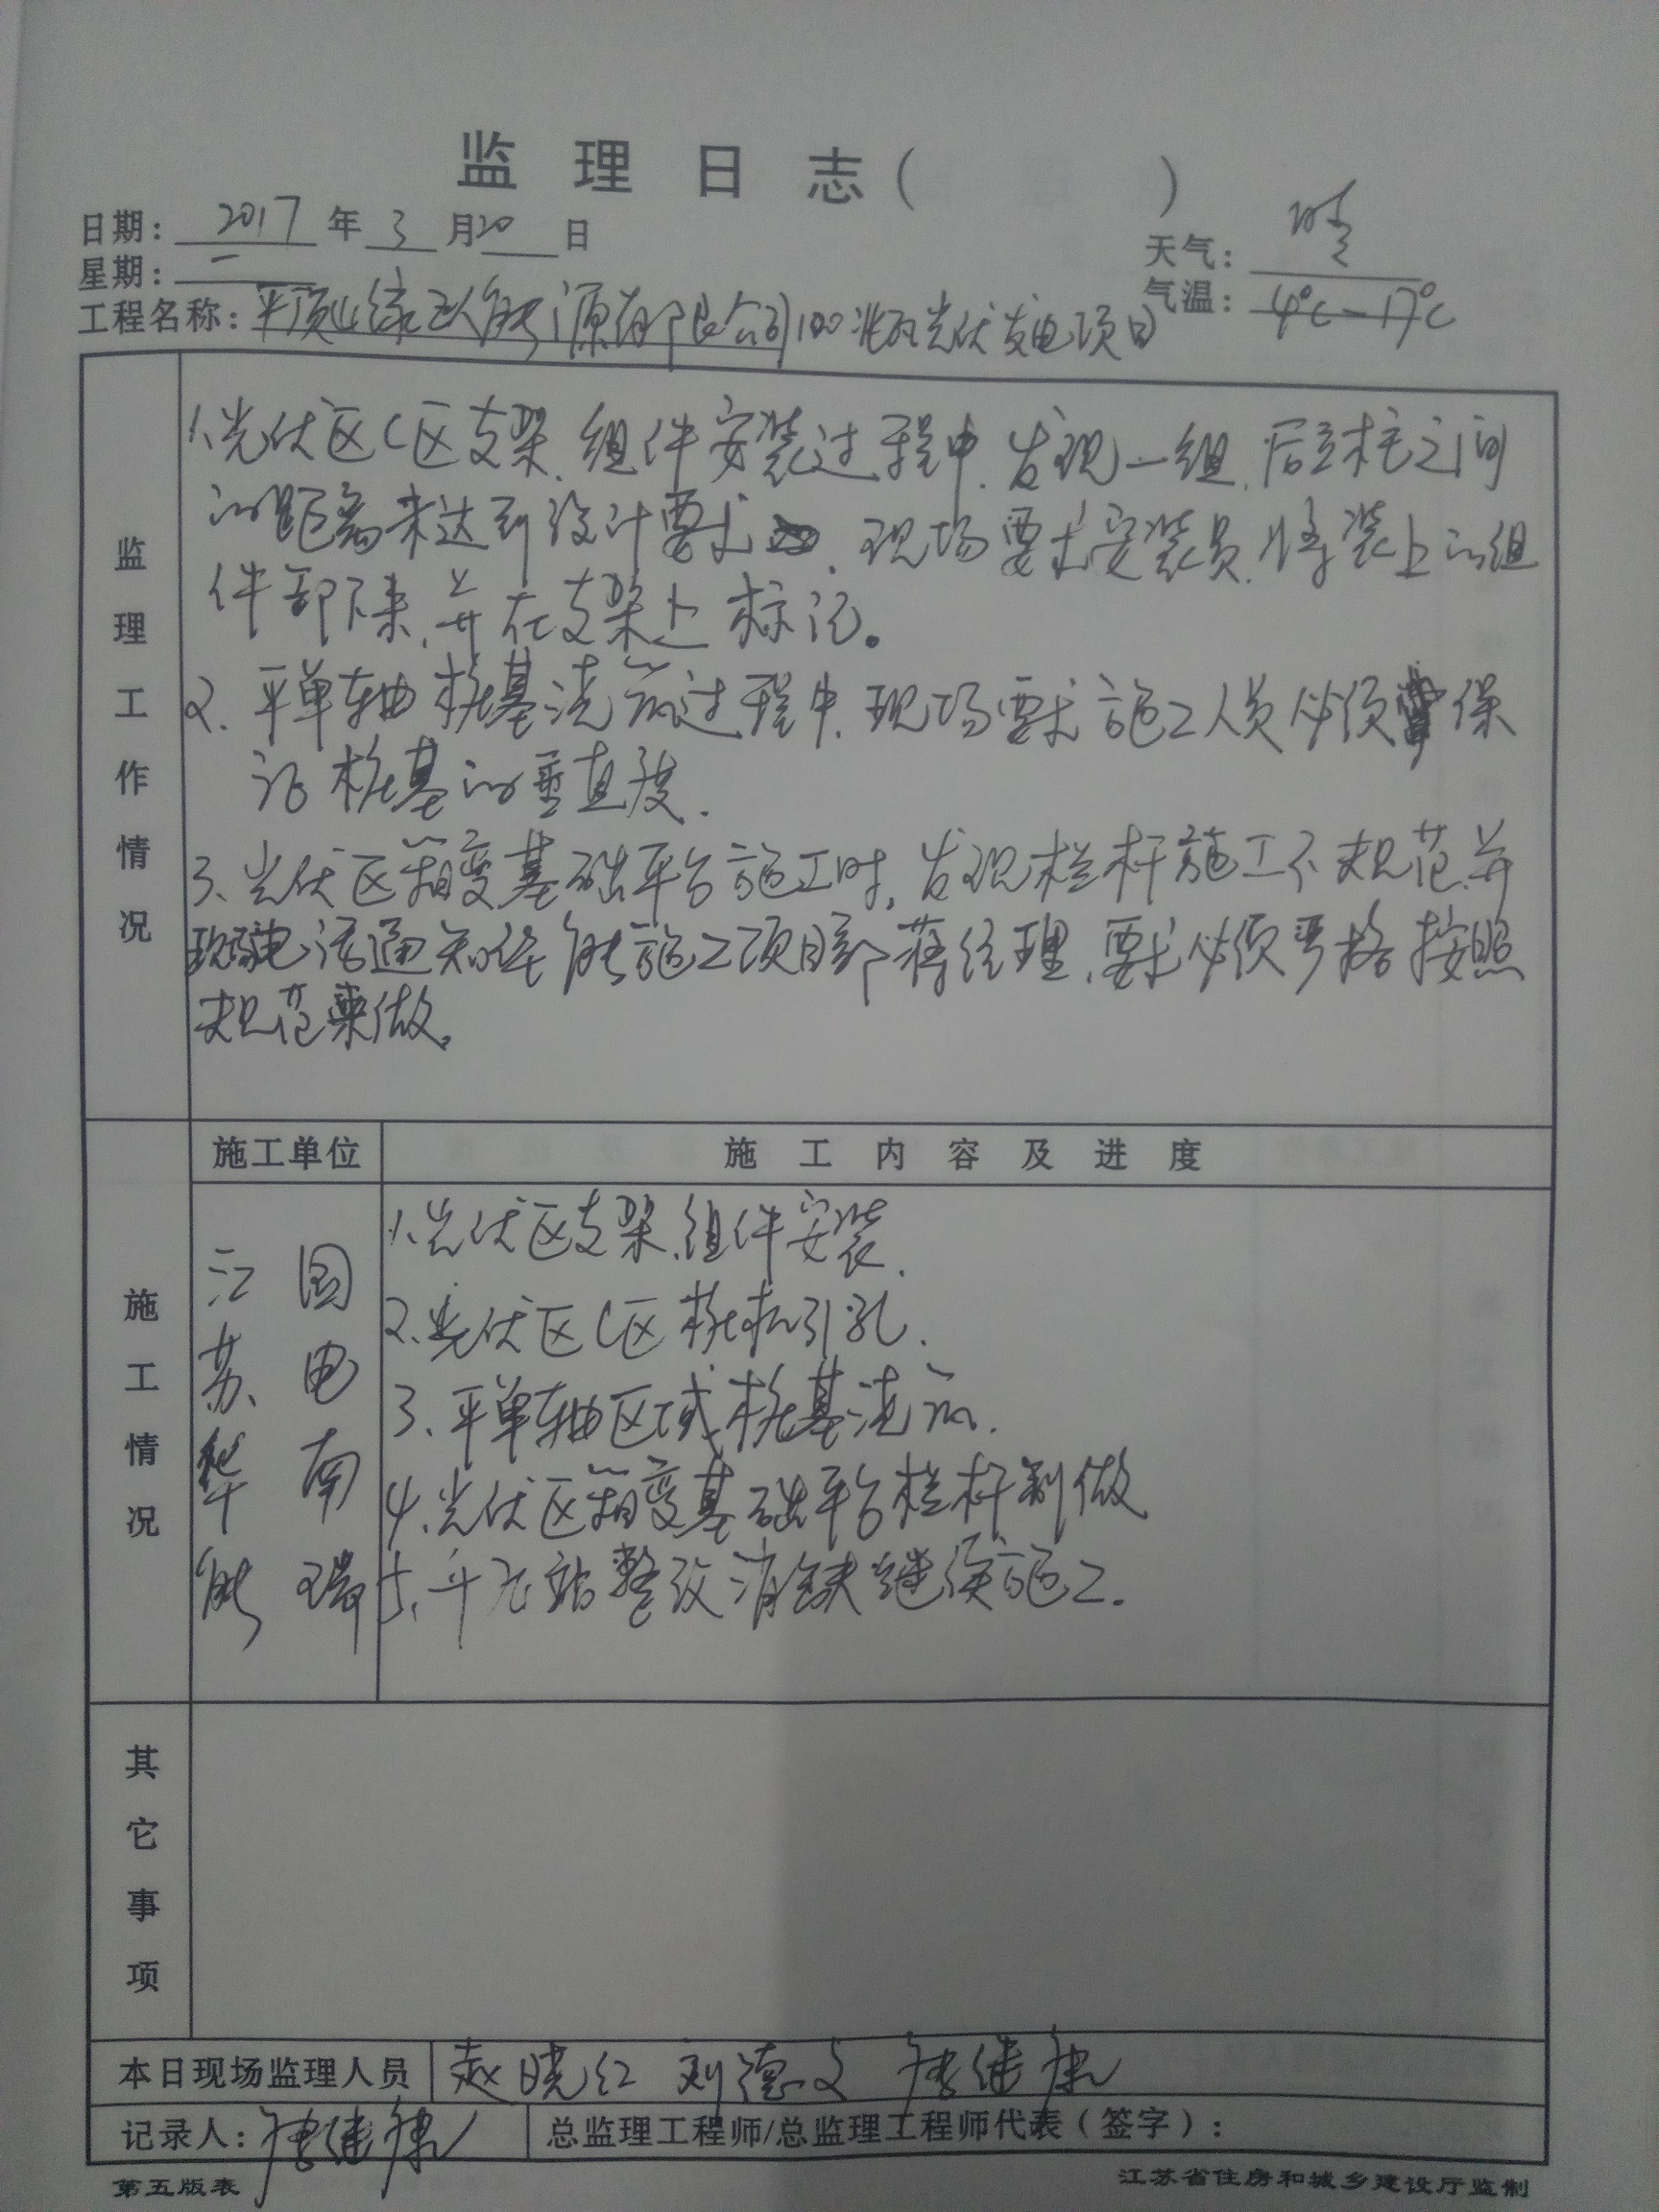 监理日志（　　　）
日期：2017年3月20日
天气：晴
星期：一
气温：4℃-17℃
工程名称：平顶山绿立能源有限公司100兆瓦光伏发电项目
监理工作情况
1、光伏区C区支架、组件安装过程中，发现一组，后立柱之间
的距离未达到设计要求，现场要求安装员，将装上的组
件卸下来，并在支架上标记。
2、平单轴桩基浇筑过程中，现场要求施工人员必须保
证桩基的垂直度。
3、光伏区箱变基础平台施工时，发现栏杆施工不规范，并
现场电话通知华能施工项目部蒋经理，要求必须严格按照
规范来做。
施工单位 施工内容及进度
施工情况
江苏华能
国电南瑞
1、光伏区支架、组件安装。
2、光伏区C区桩机引孔。
3、平单轴区域桩基浇筑。
4、光伏区箱变基础平台栏杆制做
5、升压站整改消缺继续施工。
其它事项
本日现场监理人员 赵晓红 刘德文 唐继康
记录人：唐继康 总监理工程师/总监理工程师代表（签字）：
第五版表 江苏省住房和城乡建设厅监制